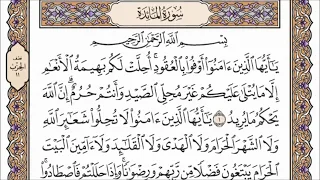 سُورَةُ المَائِدَةِ
بِسْمِ اللَّهِ الرَّحْمَٰنِ الرَّحِيمِ
يَا أَيُّهَا الَّذِينَ ءَامَنُوا أَوْفُوا بِالْعُقُودِ أُحِلَّتْ لَكُم بَهِيمَةُ الْأَنْعَٰمِ
إِلَّا مَا يُتْلَىٰ عَلَيْكُمْ غَيْرَ مُحِلِّى الصَّيْدِ وَأَنتُمْ حُرُمٌ إِنَّ اللَّهَ
يَحْكُمُ مَا يُرِيدُ ١ يَا أَيُّهَا الَّذِينَ ءَامَنُوا لَا تُحِلُّوا شَعَٰٓئِرَ اللَّهِ
وَلَا الشَّهْرَ الْحَرَامَ وَلَا الْهَدْىَ وَلَا الْقَلَٰٓئِدَ وَلَآ ءَآمِّينَ الْبَيْتَ
الْحَرَامَ يَبْتَغُونَ فَضْلًا مِّن رَّبِّهِمْ وَرِضْوَٰنًا وَإِذَا حَلَلْتُمْ فَاصْطَادُوا